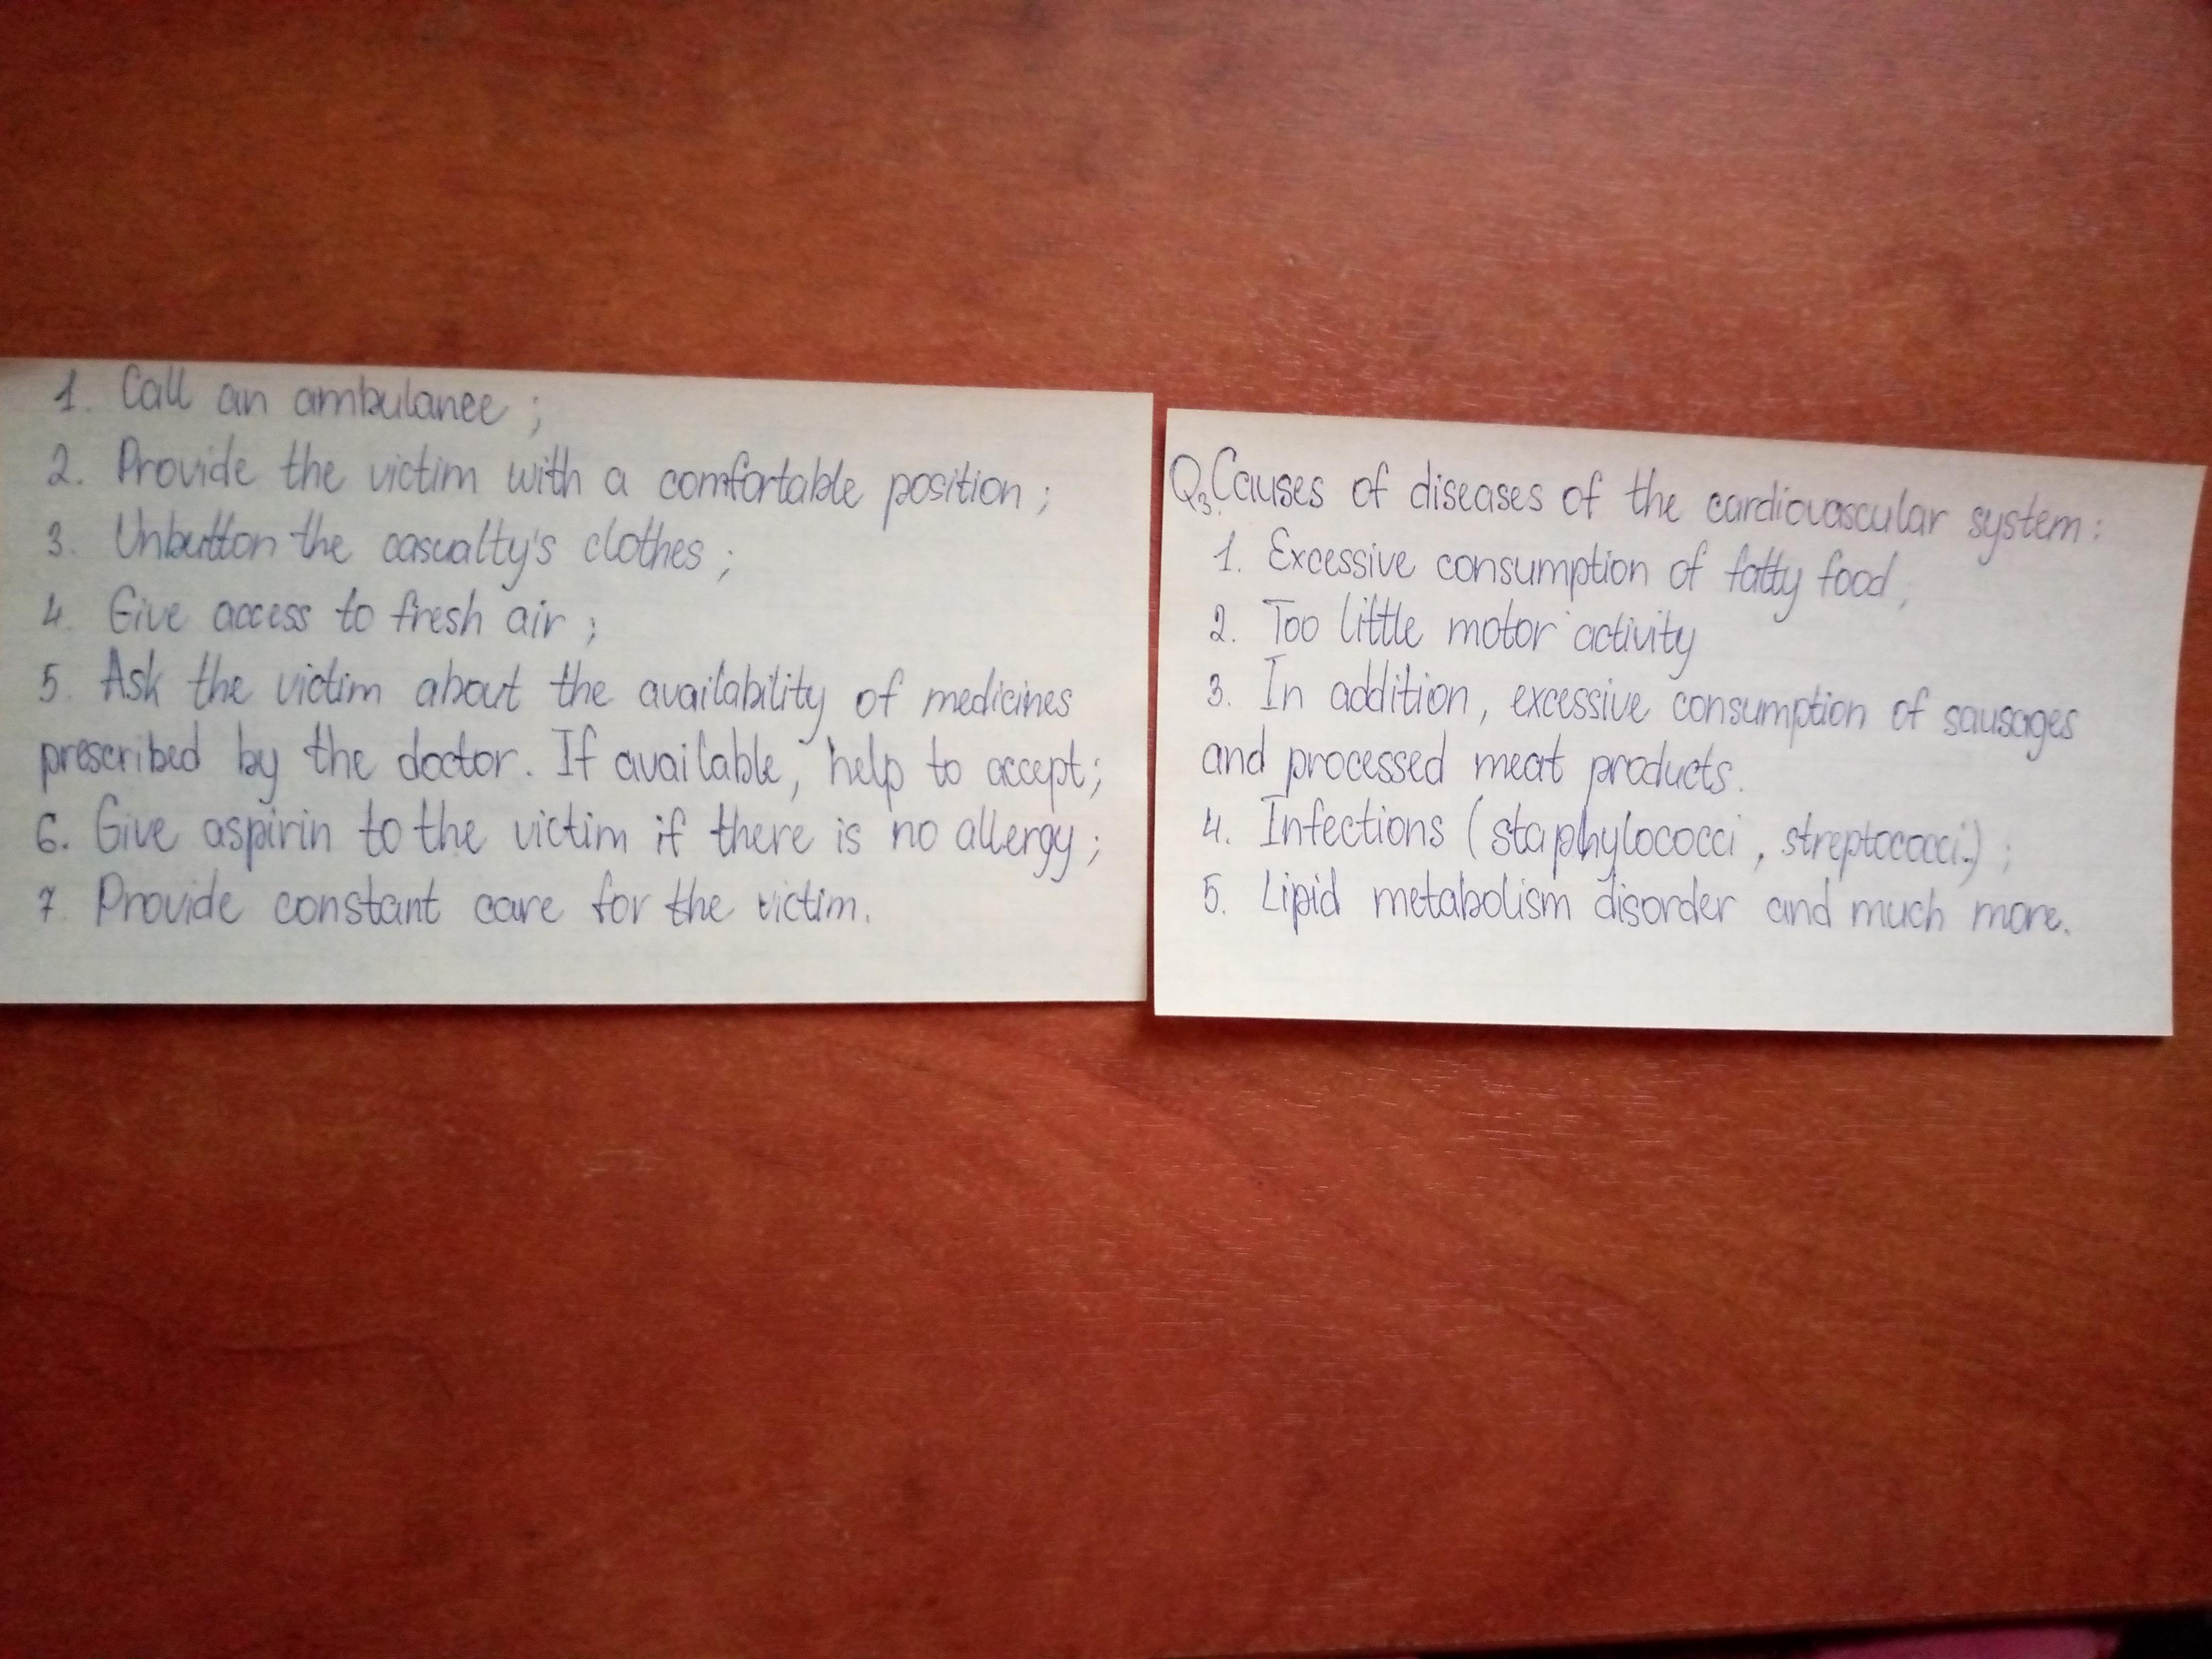 1. Call an ambulance;
2. Provide the victim with a comfortable position;
3. Unbutton the casualty's clothes;
4. Give access to fresh air;
5. Ask the victim about the availability of medicines
prescribed by the doctor. If available, help to accept;
6. Give aspirin to the victim if there is no allergy;
7. Provide constant care for the victim.
Q3. Causes of diseases of the cardiovascular system:
1. Excessive consumption of fatty food;
2. Too little motor activity
3. In addition, excessive consumption of sausages
and processed meat products.
4. Infections (staphylococci, streptococci.);
5. Lipid metabolism disorder and much more.